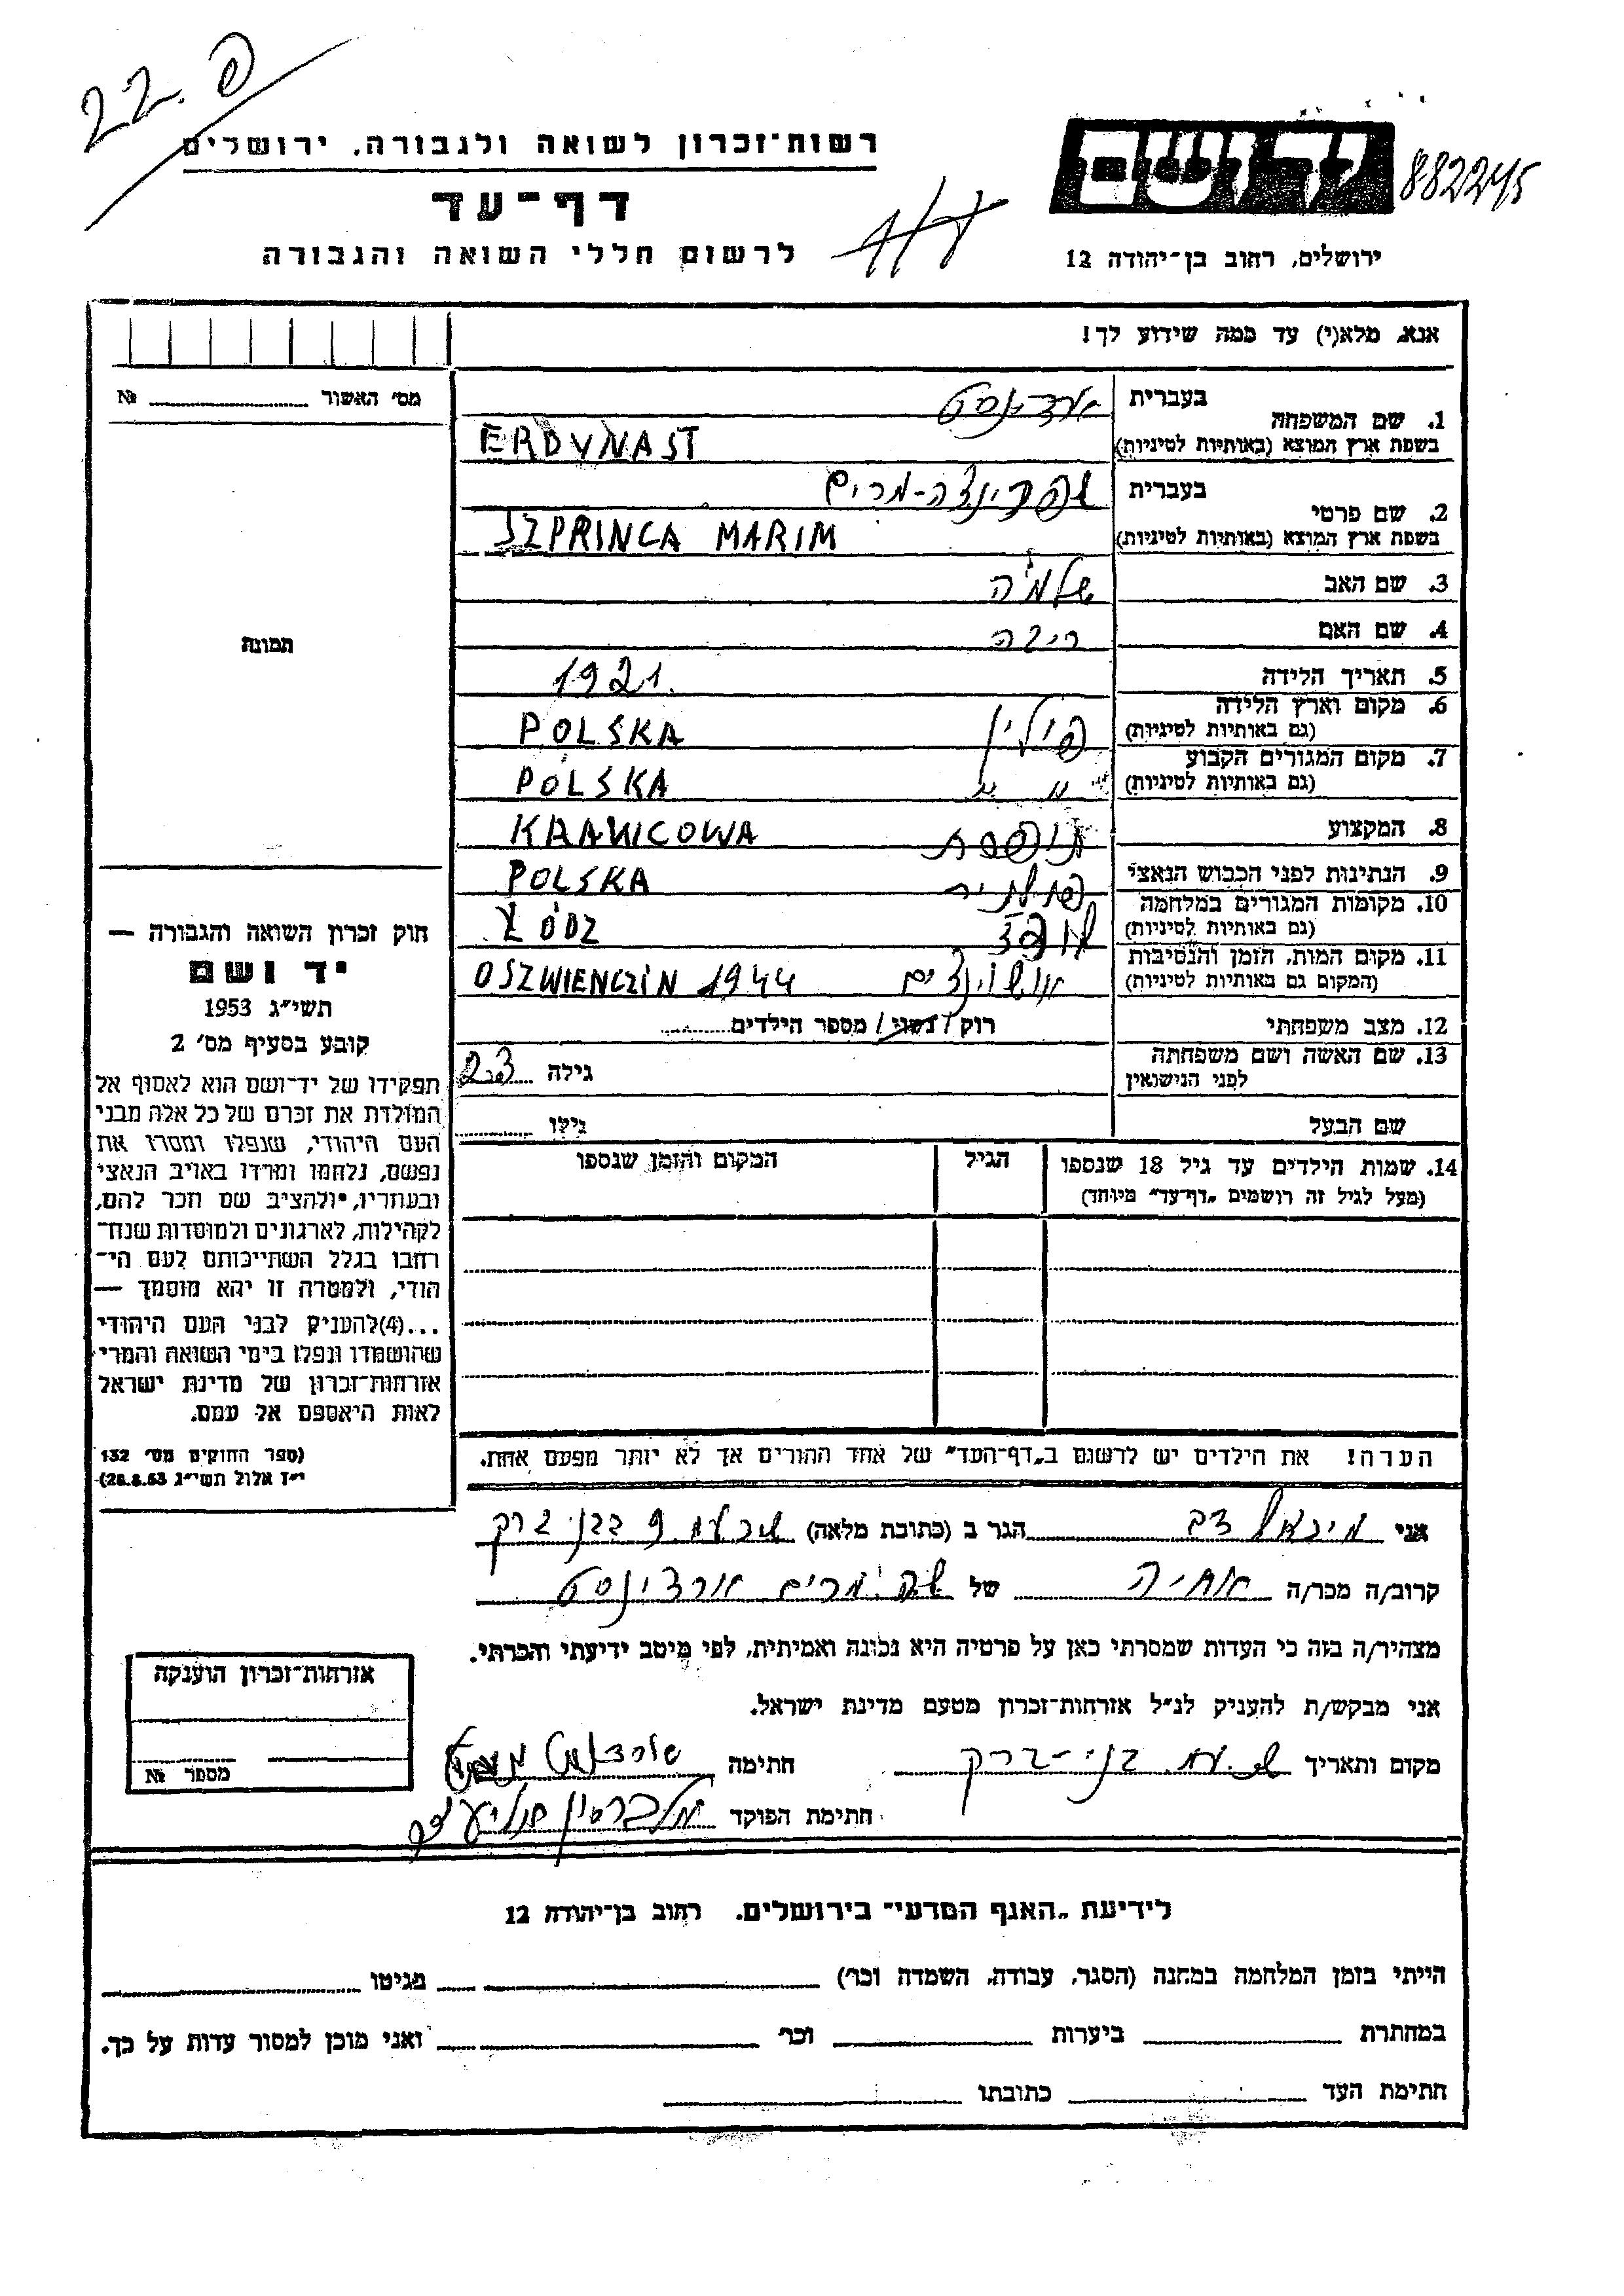 22.
רשות־זכרון לשואה ולגבורה, ירושלים
דף־עד
לרשום חללי השואה והגבורה
יד ושם
882245
ירושלים, רחוב בן־יהודה 12
אנא, מלא(י) עד כמה שידוע לך!
מס׳ האשור № 
1. שם המשפחה בעברית ארדינסט
בשפת ארץ המוצא (באותיות לטיניות) ERDYNAST
2. שם פרטי בעברית שפרינצה-מרים
בשפת ארץ המוצא (באותיות לטיניות) SZPRINCA MARIM
3. שם האב שלמה
4. שם האם ריבה
5. תאריך הלידה 1921.
6. מקום וארץ הלידה (גם באותיות לטיניות) פולין POLSKA
7. מקום המגורים הקבוע (גם באותיות לטיניות) " " POLSKA
8. המקצוע תופרת KRAWCOWA
9. הנתינות לפני הכבוש הנאצי POLSKA
10. מקומות המגורים במלחמה (גם באותיות לטיניות) לודז ŁÓDZ
11. מקום המות, הזמן והנסיבות (המקום גם באותיות לטיניות) OSZWIENCZIN 1944
12. מצב משפחתי רוק / נשוי / מספר הילדים
13. שם האשה ושם משפחתה לפני הנישואין גילה 23
שם הבעל גילו
14. שמות הילדים עד גיל 18 שנספו (מעל לגיל זה רושמים „דף־עד״ מיוחד) הגיל המקום והזמן שנספו
תמונה
חוק זכרון השואה והגבורה —
יד ושם
תשי״ג 1953
קובע בסעיף מס׳ 2
תפקידו של יד־ושם הוא לאסוף אל
המולדת את זכרם של כל אלה מבני
העם היהודי, שנפלו ומסרו את
נפשם, נלחמו ומרדו באויב הנאצי
ובעוזריו, ולהציב שם וזכר להם,
לקהילות, לארגונים ולמוסדות שנח־
רבו בגלל השתייכותם לעם הי־
הודי, ולמטרה זו יהא מוסמך —
...(4)להעניק לבני העם היהודי
שהושמדו ונפלו בימי השואה והמרי
אזרחות־זכרון של מדינת ישראל
לאות היאספם אל עמם.
(ספר החוקים מס׳ 132
י״ז אלול תשי״ג 28.8.53)
הערה! את הילדים יש לרשום ב„דף־העד״ של אחד ההורים אך לא יותר מפעם אחת.
אני מיכאל דב הגר ב (כתובת מלאה) 9 בבני ברק
קרוב/ה מכר/ה אחיה של מרים ארדינסט
מצהיר/ה בזה כי העדות שמסרתי כאן על פרטיה היא נכונה ואמיתית, לפי מיטב ידיעתי והכרתי.
אני מבקש/ת להעניק לנ״ל אזרחות־זכרון מטעם מדינת ישראל.
מקום ותאריך בני-ברק חתימה
חתימת הפוקד
אזרחות־זכרון הוענקה
מספר №
לידיעת „האגף המדעי״ בירושלים. רחוב בן־יהודה 12
הייתי בזמן המלחמה במחנה (הסגר, עבודה, השמדה וכו׳) בגיטו
במחתרת ביערות וכו׳ ואני מוכן למסור עדות על כך.
חתימת העד כתובתו